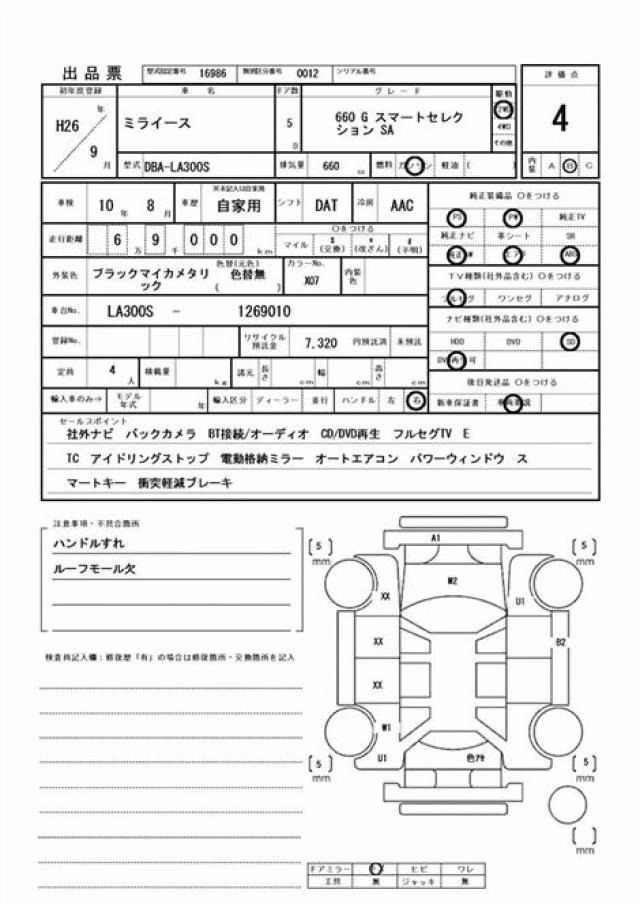 出品票 型式指定番号 16986 類別区分番号 0012 シリアル番号
評価点
4
内装 A B C
初年度登録 車名 ドア数 グレード 駆動
H26年 9月
ミライース
5 D
660 G スマートセレクション SA
2WD
4WD
その他
型式 DBA-LA300S 排気量 660 cc 燃料 ガソリン 軽油 ( )
車検 10年 8月 車歴 ※未記入は自家用 自家用 シフト DAT 冷房 AAC
走行距離 6万 9千 0 0 0 km ○をつける
マイル $(交換) *(改ざん) #(不明)
外装色 ブラックマイカメタリック 色替(元色) 色替無 ( ) カラーNo. X07 内装色
車台No. LA300S - 1269010
登録No. リサイクル預託金 7,320 円預託済 未預託
定員 4人 積載量 kg 諸元 長さ cm 幅 cm 高さ cm
輸入車のみ⇒ モデル年式 年 輸入区分 ディーラー 並行 ハンドル 左 右
純正装備品 ○をつける
PS PW 純正TV
純正ナビ 革シート SR
純正AW エアB ABS
TV種類(社外品含む) ○をつける
フルセグ ワンセグ アナログ
ナビ種類(社外品含む) ○をつける
HDD DVD SD
DVD再生可
後日発送品 ○をつける
新車保証書 車両取説
セールスポイント
社外ナビ バックカメラ BT接続/オーディオ CD/DVD再生 フルセグTV E
TC アイドリングストップ 電動格納ミラー オートエアコン パワーウィンドウ ス
マートキー 衝突軽減ブレーキ
注意事項・不具合箇所
ハンドルすれ
ルーフモール欠
検査員記入欄：修復歴「有」の場合は修復箇所・交換箇所を記入
A1
[5] mm
[5] mm
W2
XX
U1
XX
B2
XX
W1
U1
色ｱｾ
[5] mm
[5] mm
[ ] mm
ドアミラー キズ ヒビ ワレ
工具 無 ジャッキ 無